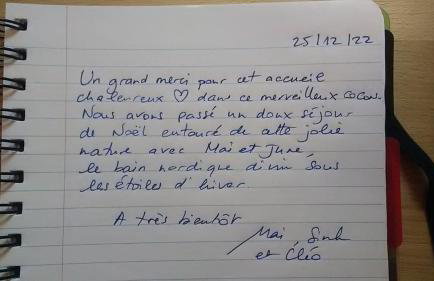 25/12/22
Un grand merci pour cet accueil
chaleureux ♡ dans ce merveilleux cocon.
Nous avons passé un doux séjour
de Noël entouré de cette jolie
nature avec Mai et June,
le bain nordique divin sous
les étoiles d'hiver.
A très bientôt
Mai, Sinh
et Cléo